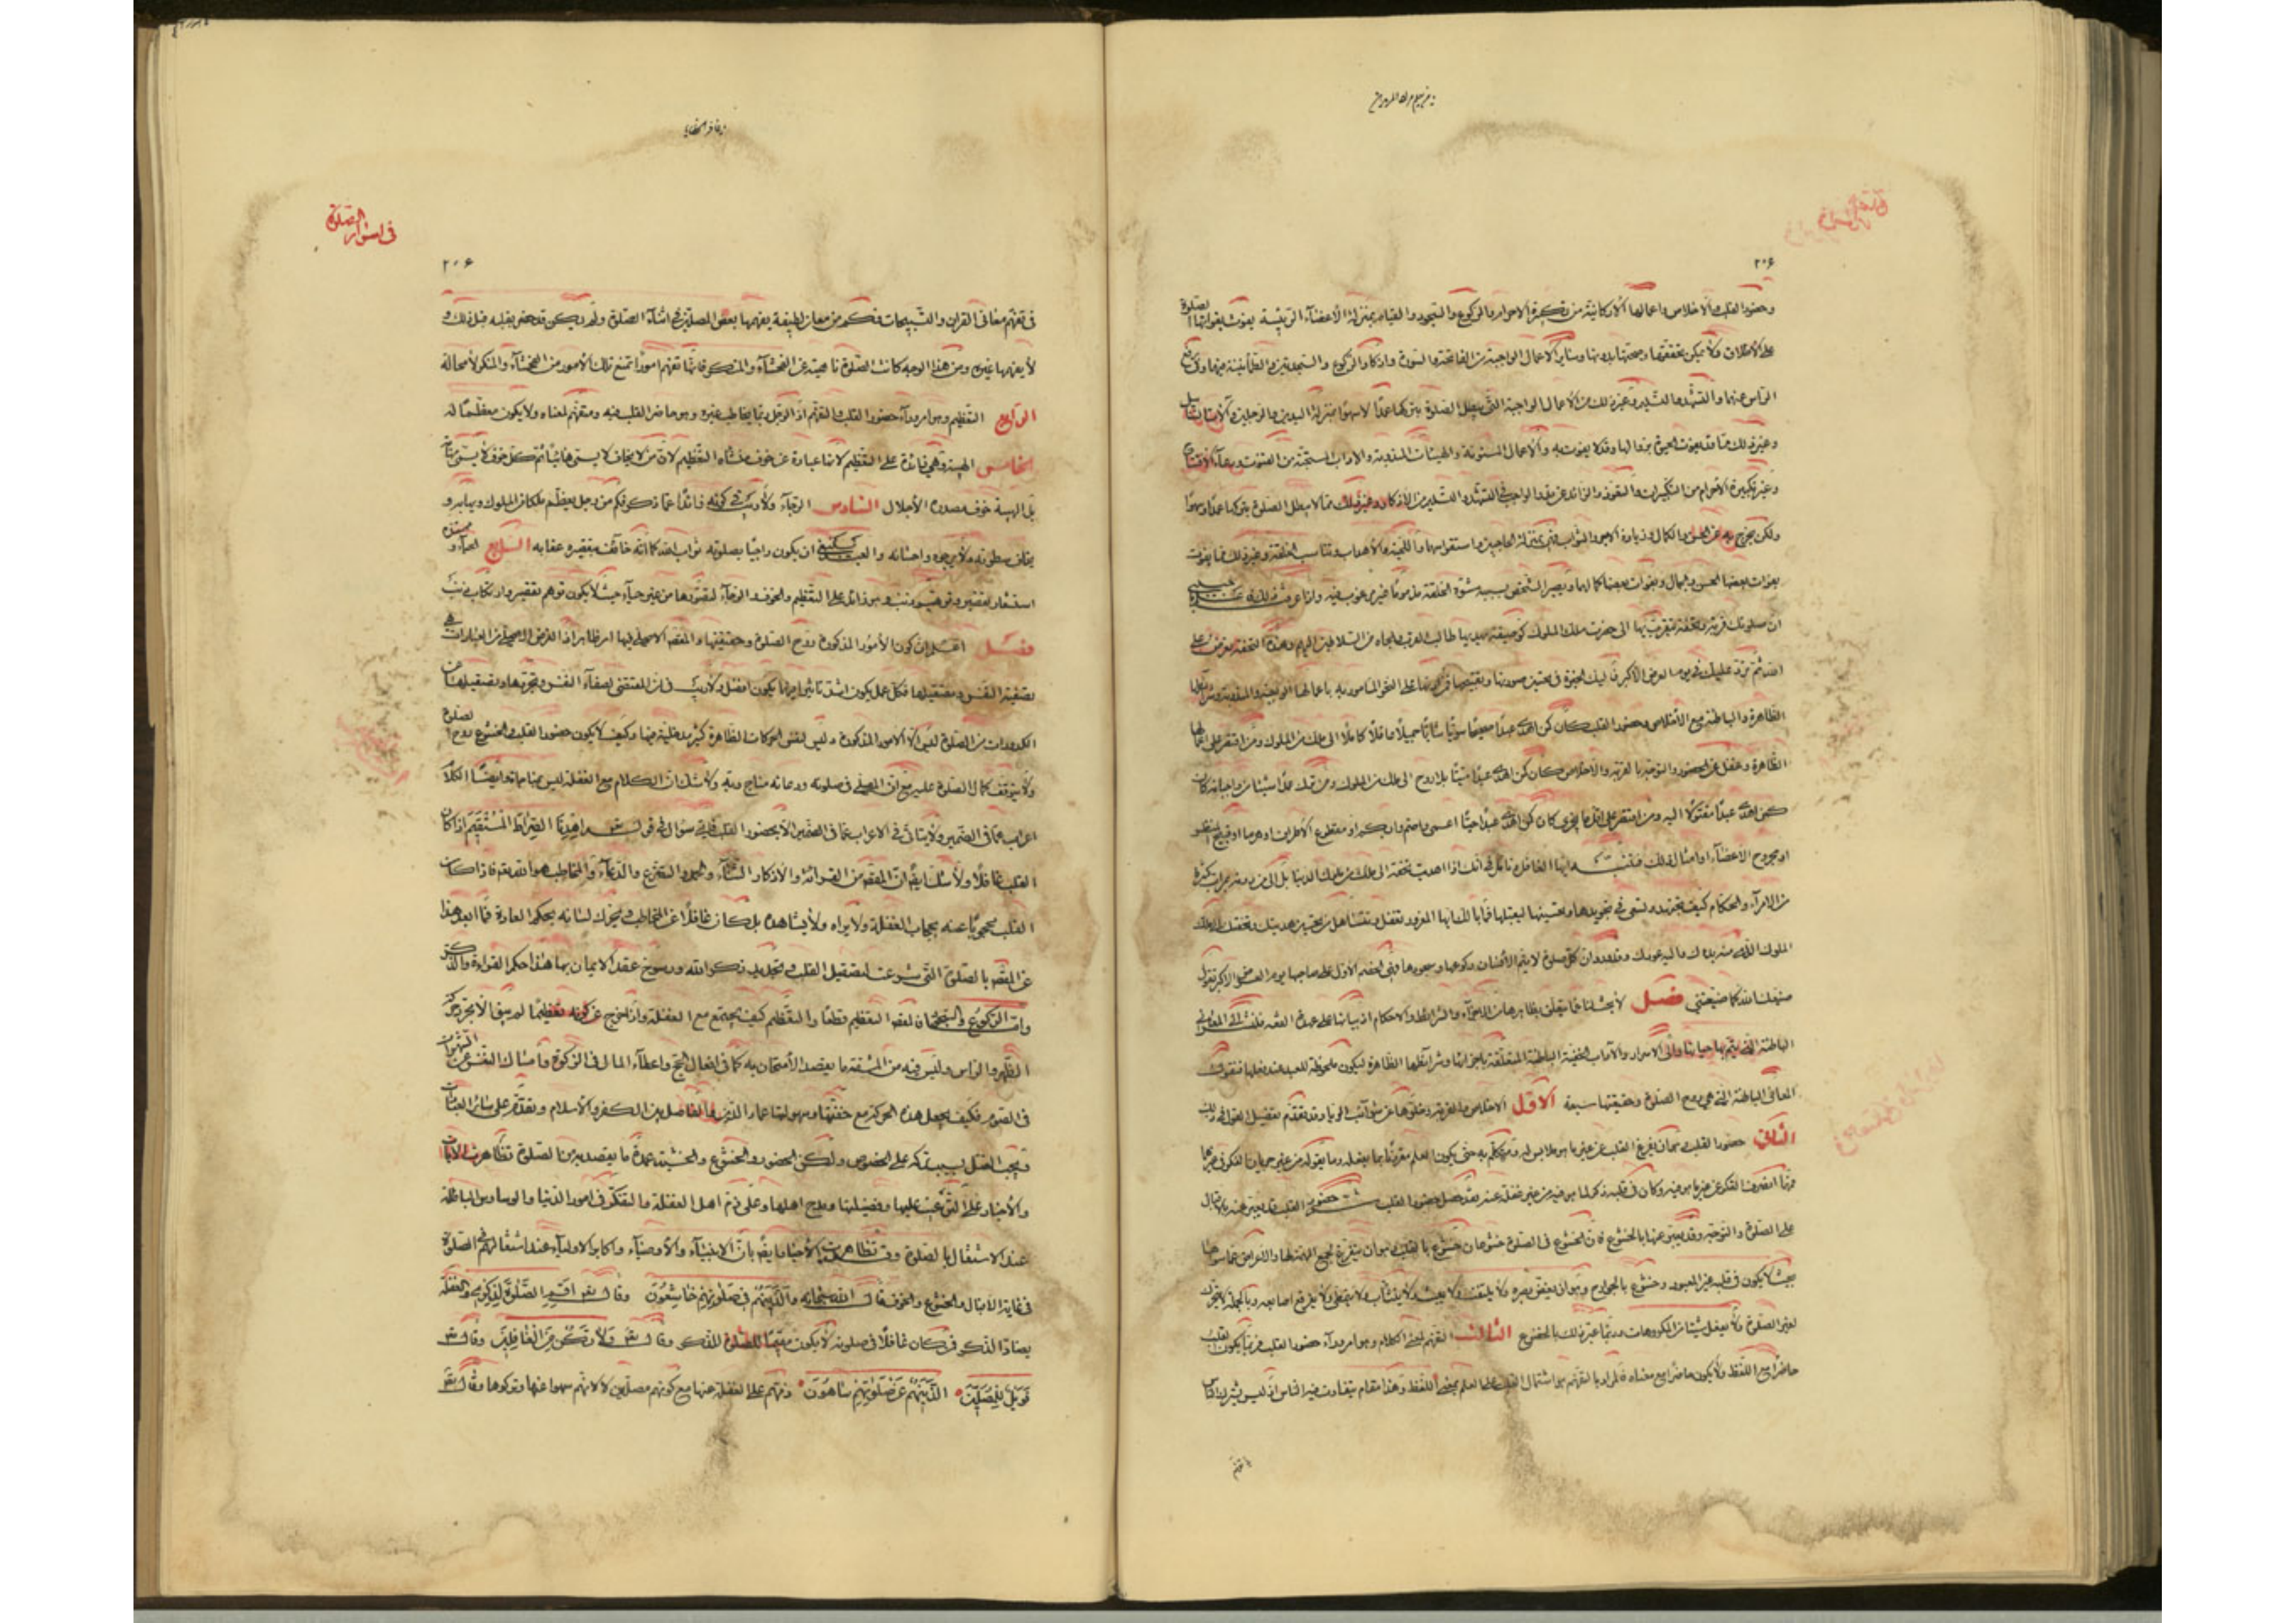 وحضور القلب والاخلاص واعمالها الاركانية من تكبيرة الاحرام والركوع والسجود والقيام بمنزلة الاعضاء الرئيسة يفوت بفواتها الصلوة
على الاطلاق ولا يمكن تحققها وصحتها بدونها وسائر الاعمال الواجبة من الفاتحة والسورة واذكار الركوع والسجدتين والطمأنينة فيهما وفى رفع
الراس عنهما والتشهد والتسليم وغير ذلك من الاعمال الواجبة التى يبطل الصلوة بتركها عمدا لا سهوا بمنزلة اليدين والرجلين
وغير ذلك مما قد يفوت الحيوة بزوالها وقد لا يفوت به والاعمال المسنونة والهيئات المندوبة والاداب المستحبة من القنوت ودعاء الافتتاح
وغير تكبيرة الاحرام من التكبيرات والتعوذ والزائد عن قدر الواجب فى التشهد والتسليم من الاذكار وغير ذلك مما لا يبطل الصلوة بتركها عمدا وسهوا
ولكن تخرج بها عن الحسن والكمال وزيادة الاجر والثواب فهى بمنزلة الحاجبين واستقواسهما واللحية والاهداب وتناسب الخلقة وغير ذلك مما يفوت
بفوات بعضها الحسن والجمال وبفوات بعضها كمالهما ويصير الشخص بسببه مشوه الخلقة مذموما غير مرغوب فيه واذا عرفت ذلك
ان صلوتك قربة وتحفة تتقرب بها الى حضرت ملك الملوك كوصيفة يهديها طالب القرب والجاه من السلاطين اليهم وهذه التحفة تعرض على
الله ثم ترد عليك فى يوم العرض الاكبر فاليك الخيرة فى تحسين صورتها وتقبيحها فمن اداها على النحو المامور به باعمالها الواجبة والمندوبة وشرائطها
الظاهرة والباطنة مع الاخلاص وحضور القلب كان كمن اهدى عبدا صحيحا سويا شابا جميلا عاقلا كاملا الى ملك من الملوك ومن اقتصر على اعمالها
الظاهرة وغفل عن الحضور والتوجه والقربة والاخلاص كان كمن اهدى عبدا ميتا بلا روح الى ملك من الملوك ومن ترك عمدا شيئا من واجباتها كان
كمن اهدى عبدا مقتولا اليه ومن اقتصر على اقل ما يجزى كان كمن اهدى عبدا حيا اعمى او اصم او ابكم او مقطوع الاطراف او هرما او قبيح المنظر
او مجروح الاعضاء او امثال ذلك فتنبه ايها الغافل وتامل فى انك اذا اهديت تحفة الى ملك من ملوك الدنيا بل الى من دونه بمراتب كثيرة
من الامراء والحكام كيف تجتهد وتسعى فى تجويدها وتحسينها ليقبلها فما بالك ايها المغرور تغفل وتتساهل من تحسين هديتك وتحفتك الى ملك
الملوك الذى منه بدؤك واليه عودك وقد ورد ان كل صلوة لا يتم الانسان ركوعها وسجودها فهى الخصم الاول على صاحبها يوم العرض الاكبر وتقول
ضيعك الله كما ضيعتنى فصل لا بحث لنا عما يتعلق بظاهرها من الاجزاء والشرائط والاحكام اذ بيانها على عهدة الفقه فلنشر الى المعانى
الباطنة التى بها يتم حياتها والى الاسرار والاداب الخفية الباطنة المتعلقة باجزائها وشرائطها الظاهرة ليكون ملحوظة للعبد عند فعلها فنقول
المعانى الباطنة التى هى روح الصلوة وحقيقتها سبعة الاول الاخلاص والقربة وخلوها عن شوائب الريا وقد تقدم تفصيل القول فى ذلك
الثانى حضور القلب وهو ان يفرغ القلب عن غير ما هو ملابس له ومتكلم به حتى يكون العلم مقرونا بما يفعله وما يقوله من غير جريان الفكر فى غيرهما
فمهما انصرف الفكر عن غير ما هو فيه وكان فى قلبه ذكر لما هو فيه من غير غفلة عنه فقد حصل حضور القلب ثم حضور القلب قد يعبر عنه بالاقبال
على الصلوة والتوجه وقد يعبر عنها بالخشوع فان الخشوع فى الصلوة خشوعان خشوع بالقلب وهو ان يتفرغ لجمع الهمة لها والاعراض عما سواها
بحيث لا يكون فى قلبه غير المعبود وخشوع بالجوارح وهو ان يغض بصره ولا يلتفت ولا يعبث ولا يتثاب ولا يتمطى ولا يفرقع اصابعه وبالجملة لا يتحرك
لغير الصلوة ولا يفعل شيئا من المكروهات وربما عبر ذلك بالخضوع الثالث التفهم لمعنى الكلام وهو امر وراء حضور القلب فربما يكون القلب
حاضرا مع اللفظ ولا يكون حاضرا مع معناه فالمراد بالتفهم هو اشتمال القلب على العلم بمعنى اللفظ وهذا مقام يتفاوت فيه الناس اذ ليس يشترك الناس
فى اسرار الصلوة
٢٠۶
فى تفهم معانى القران والتسبيحات فكم من معان لطيفة يفهمها بعض المصلين فى اثناء الصلوة ولم يكن قد خطر بقلبه قبل ذلك و
لا يفهمها غيره ومن هذا الوجه كانت الصلوة ناهية عن الفحشاء والمنكر فانها تفهم امورا تمنع تلك الامور من الفحشاء والمنكر لا محالة
الرابع التعظيم وهو امر وراء حضور القلب والتفهم اذ الرجل ربما يخاطب غيره وهو حاضر القلب فيه ومتفهم لمعناه ولا يكون معظما له
الخامس الهيبة وهى زائدة على التعظيم لانها عبارة عن خوف منشاه التعظيم لان من لا يخاف لا يسمى هائبا ثم كل خوف لا يسمى مهابة
بل الهيبة خوف مصدره الاجلال السادس الرجاء ولا ريب فى كونه زائدا عما ذكر فكم من رجل يعظم ملكا من الملوك ويهابه و
يخاف سطوته ولا يرجو بره واحسانه والعبد ينبغى ان يكون راجيا بصلوته ثواب الله كما انه خائف بتقصيره عقابه السابع الحياء ومستنده
استشعار تقصير وتوهم ذنب وهو زائد على التعظيم والخوف والرجاء لتصورها من غير حياء حيث لا يكون توهم تقصير وارتكاب ذنب
فصل اعلم ان كون الامور المذكورة روح الصلوة وحقيقتها والمقصد الاصلى فيها امر ظاهر اذ الغرض الاصلى من العبادات
تصفية النفس وتصقيلها فكل عمل يكون اشد تاثيرا فيهما يكون افضل ولا ريب فى ان المقتضى لصفاء النفس وتجردها وتصقيلها عن
الكدورات من الصلوة ليس الا الامور المذكورة وليس لنفس الحركات الظاهرة كثير مدخلية فيها وكيف لا يكون حضور القلب والخشوع روح الصلوة
ولا يتوقف كمال الصلوة عليه مع ان المصلى فى صلوته ودعائه مناج ربه ولا شك ان الكلام مع الغفلة ليس بمناجاة وايضا الكلام
اعراب عما فى الضمير ولا يتاتى فى الاعراب عما فى الضمير الا بحضور القلب فاى سؤال فى قوله اهدنا الصراط المستقيم اذا كان
القلب غافلا ولا شك ايضا ان المقصد من القرائة والاذكار الثناء والحمد والتضرع والدعاء والمخاطب هو الله تعم فاذا كان
القلب محجوبا عنه بحجاب الغفلة ولا يراه ولا يشاهده بل كان غافلا عن المخاطب ويحرك لسانه بحكم العادة فما ابعد هذا
عن المقصد بالصلوة التى شرعت لتصقيل القلب وتجديد ذكر الله ورسوخ عقد الايمان بها هذا حكم القراءة والذكر
واما الركوع والسجود فالمقصد التعظيم قطعا والتعظيم كيف يجتمع مع الغفلة واذا خرج عن كونه تعظيما لم يبق الا مجرد حركة
الظهر والراس وليس فيه من المشقة ما يقصد الامتحان به كما فى افعال الحج واعطاء المال فى الزكوة وامساك النفس عن الشهوات
فى الصوم فكيف يجعل هذه الحركة مع خفتها وسهولتها عماد الدين والفاصل بين الكفر والاسلام وتقدم على سائر العبادات
ويجب القتل بسبب تركه على الخصوص ولكون الحضور والخشوع والخشية عمدة ما يقصد به من الصلوة تظاهرت الايات
والاخبار على الترغيب عليها وفضيلتها ومدح اهلها وعلى ذم اهل الغفلة والتفكر فى امور الدنيا والوساوس الباطلة
عند الاشتغال بالصلوة وقد تظاهرت الاخبار ايضا بان الانبياء والاوصياء واكابر الاولياء عند اشتغالهم فى الصلوة
فى غاية الاقبال والخشوع والخوف قال الله سبحانه والذين هم فى صلوتهم خاشعون وقال تعم اقم الصلوة لذكرى والغفلة
يضاد الذكر فمن كان غافلا فى صلوته لا يكون مقيما للصلوة للذكر وقال تعم ولا تكن من الغافلين وقال تعم
فويل للمصلين الذين هم عن صلوتهم ساهون ذمهم على الغفلة عنها مع كونهم مصلين لا لانهم سهوا عنها وتركوها وقال تعم